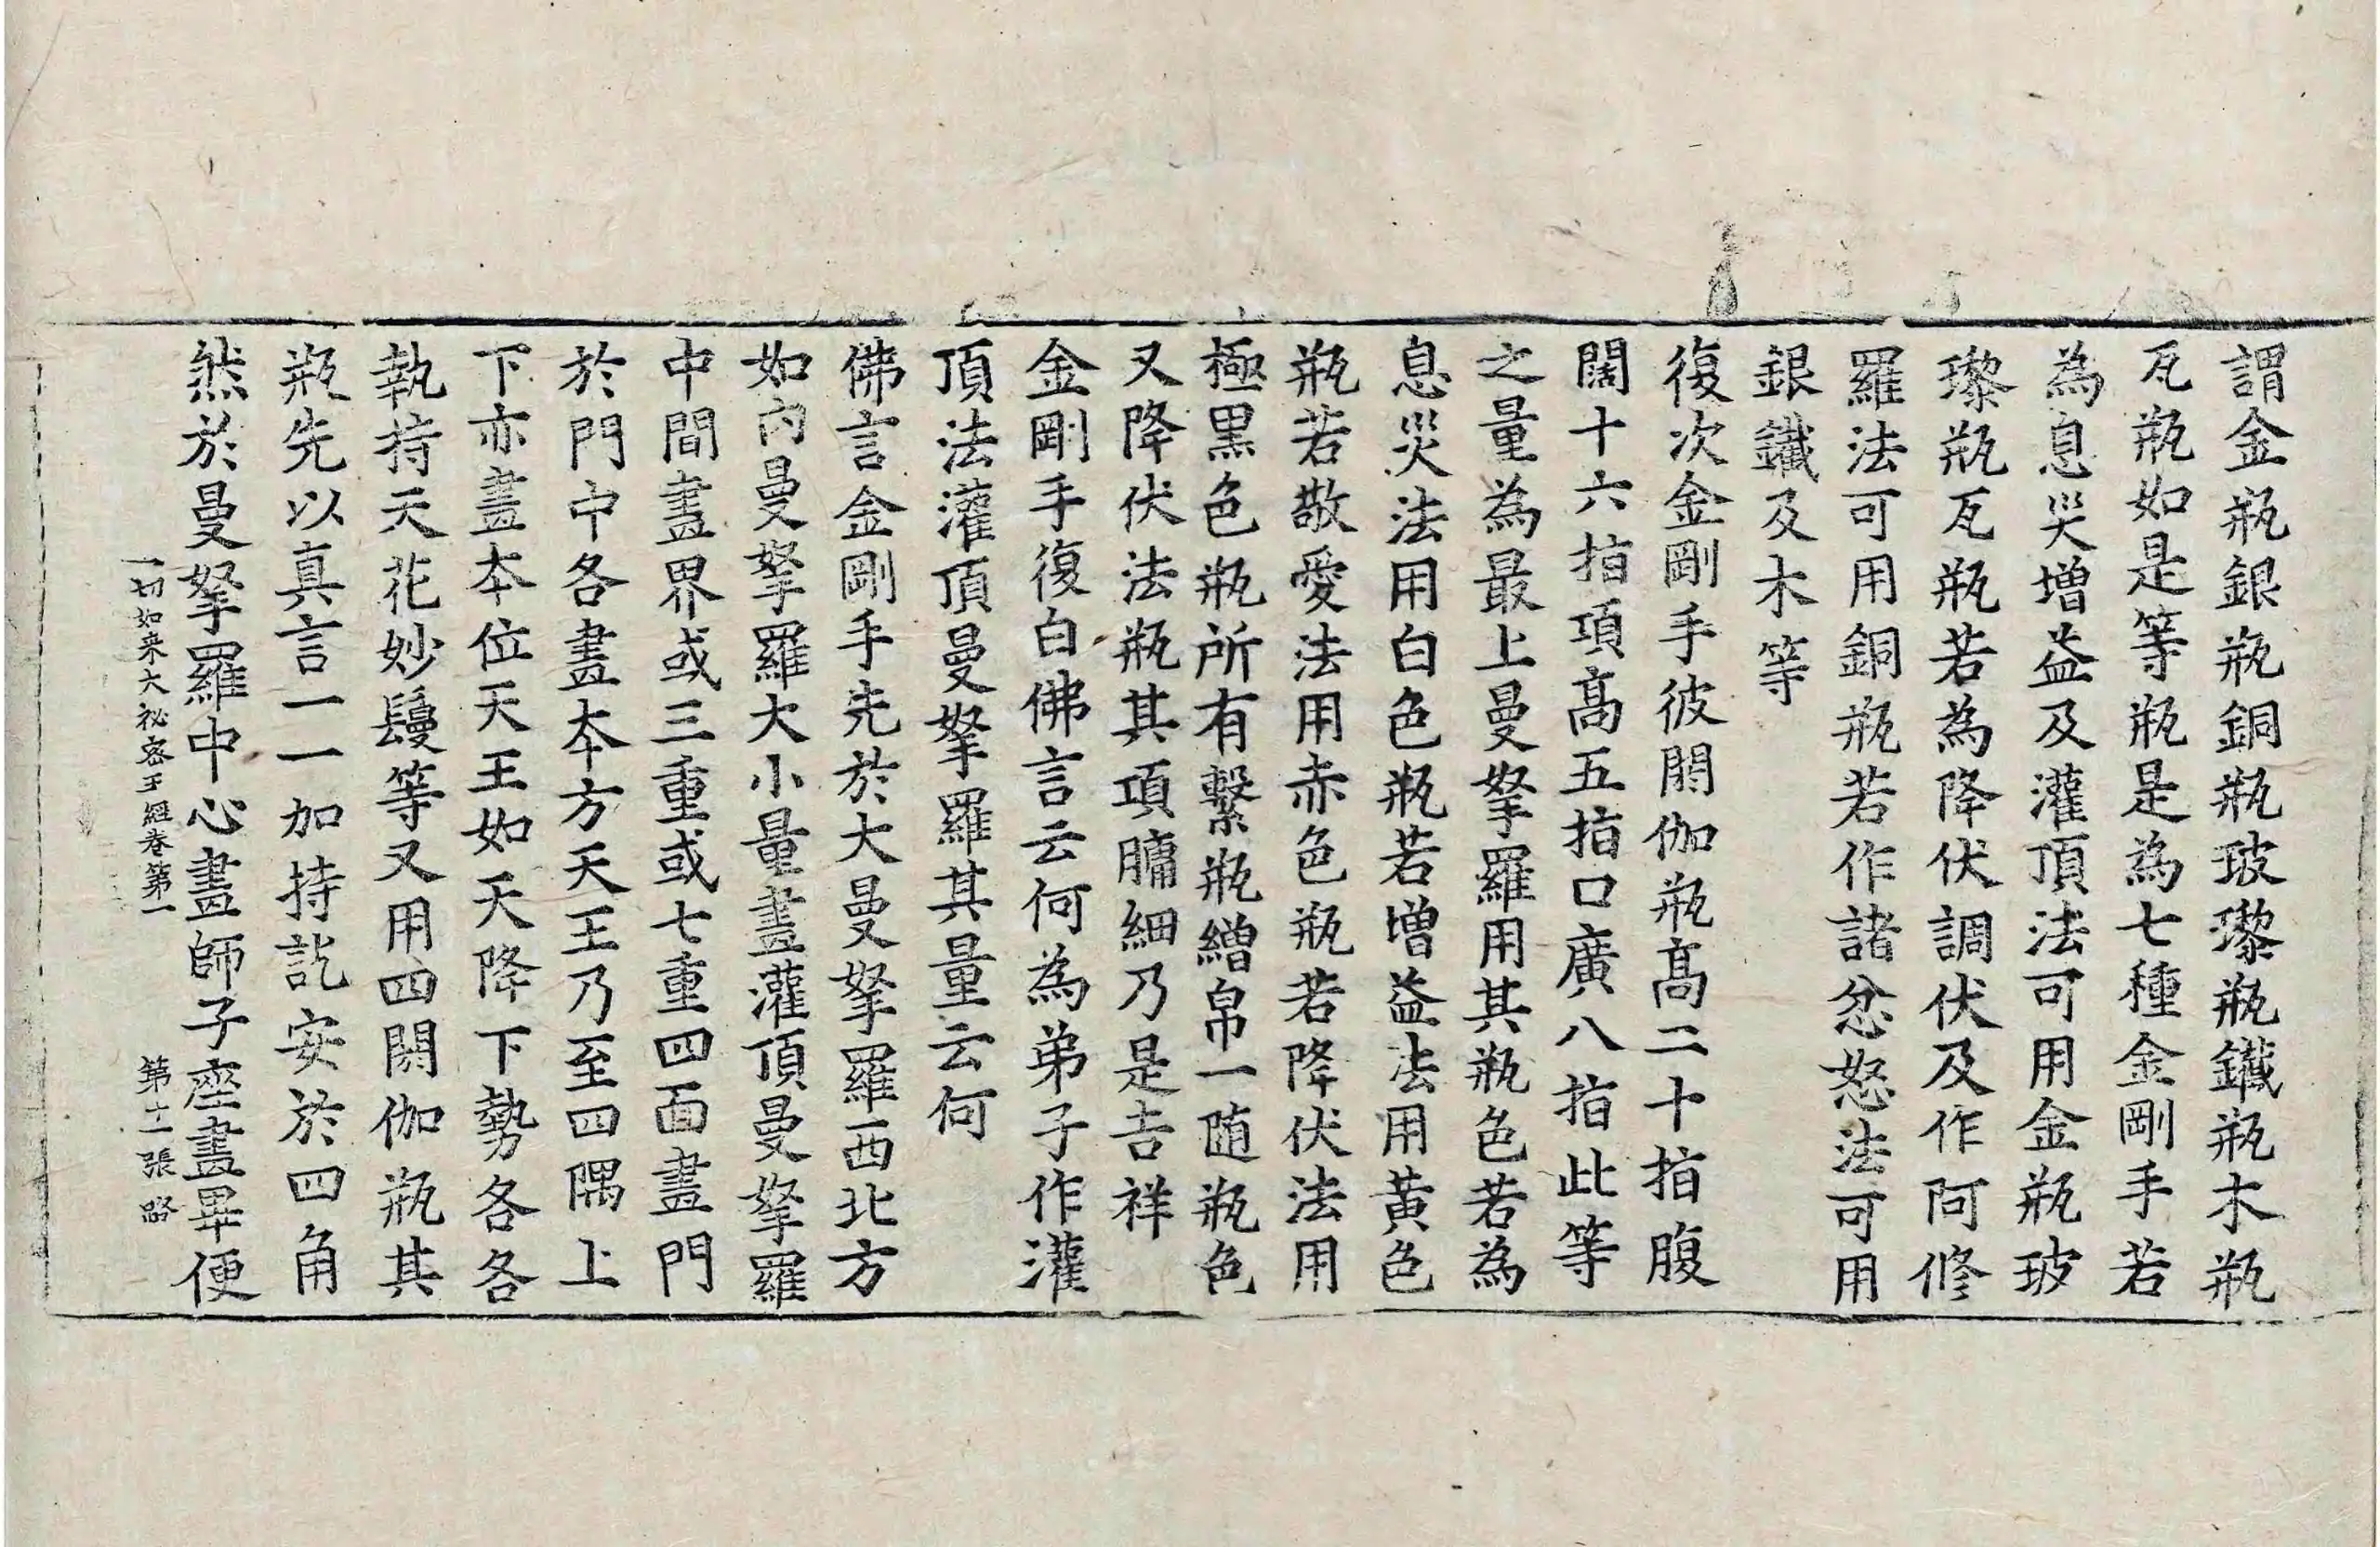 謂金瓶銀瓶銅瓶玻瓈瓶鐵瓶木瓶
瓦瓶如是等瓶是為七種金剛手若
為息災增益及灌頂法可用金瓶玻
瓈瓶瓦瓶若為降伏調伏及作阿修
羅法可用銅瓶若作諸忿怒法可用
銀鐵及木等
復次金剛手彼閼伽瓶高二十指腹
闊十六指項高五指口廣八指此等
之量為最上曼拏羅用其瓶色若為
息災法用白色瓶若增益法用黃色
瓶若敬愛法用赤色瓶若降伏法用
極黑色瓶所有繫瓶繒帛一隨瓶色
又降伏法瓶其項𦟛細乃是吉祥
金剛手復白佛言云何為弟子作灌
頂法灌頂曼拏羅其量云何
佛言金剛手先於大曼拏羅西北方
如內曼拏羅大小量畫灌頂曼拏羅
中間畫界或三重或七重四面畫門
於門中各畫本方天王乃至四隅上
下亦畫本位天王如天降下勢各各
執持天花妙鬘等又用四閼伽瓶其
瓶先以真言一一加持訖安於四角
然於曼拏羅中心畫師子座畫畢便
一切如来大祕密王經卷第一 第十一張 路